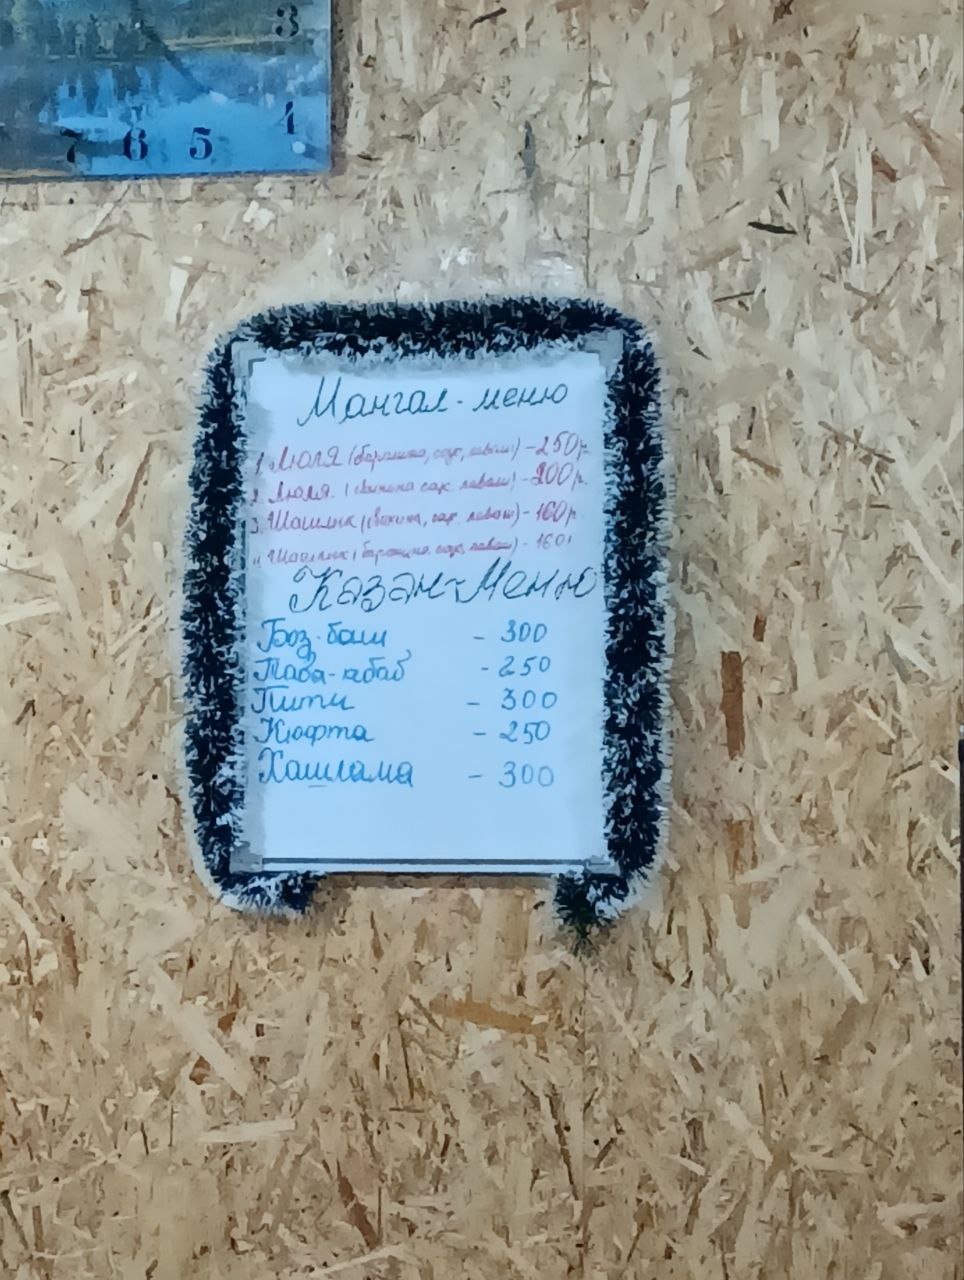 3
4
7 6 5
Мангал-меню
1. Люля (баранина, соус, лаваш) - 250р.
2. Люля (свинина соус. лаваш) - 200р.
3. Шашлык (свинина, соус. лаваш) - 160р
4. Шашлык (баранина. соус, лаваш) - 160
Казан-Меню
Боз-баш - 300
Таба-кабаб - 250
Пити - 300
Кюфта - 250
Хашлама - 300